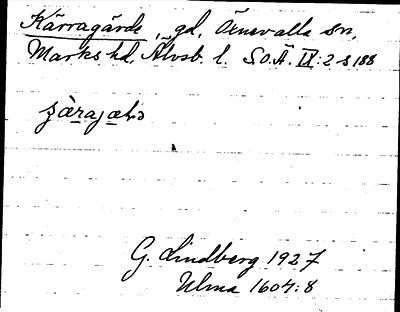 Kärragärde, gd, Öxnevalla sn,
Marks hd, Älvsb. l. S.O.Ä. IX:2 s 188
G. Lindberg 1927
Ulma 1604:8